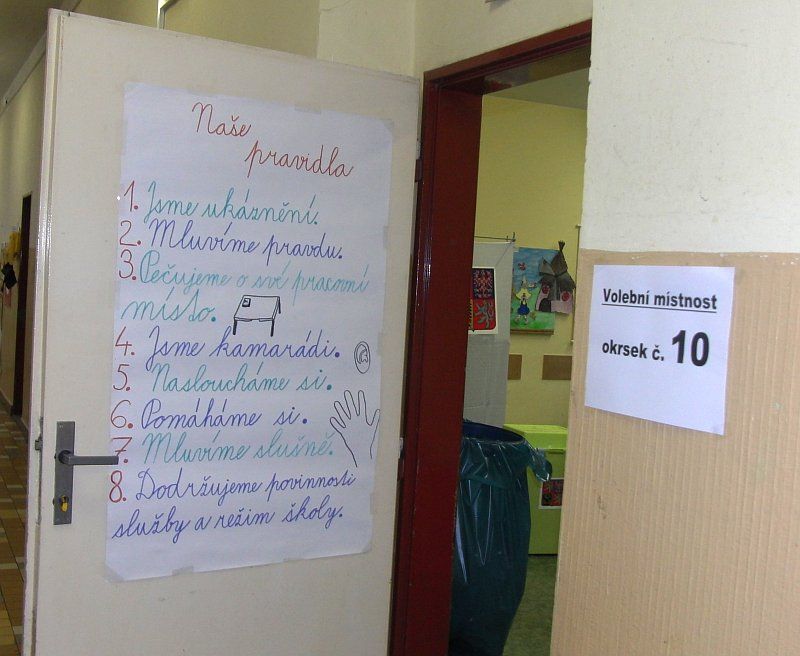 Naše
pravidla
1. Jsme ukáznění.
2. Mluvíme pravdu.
3. Pečujeme o své pracovní
místo.
4. Jsme kamarádi.
5. Nasloucháme si.
6. Pomáháme si.
7. Mluvíme slušně.
8. Dodržujeme povinnosti
služby a režim školy.
Volební místnost
okrsek č. 10